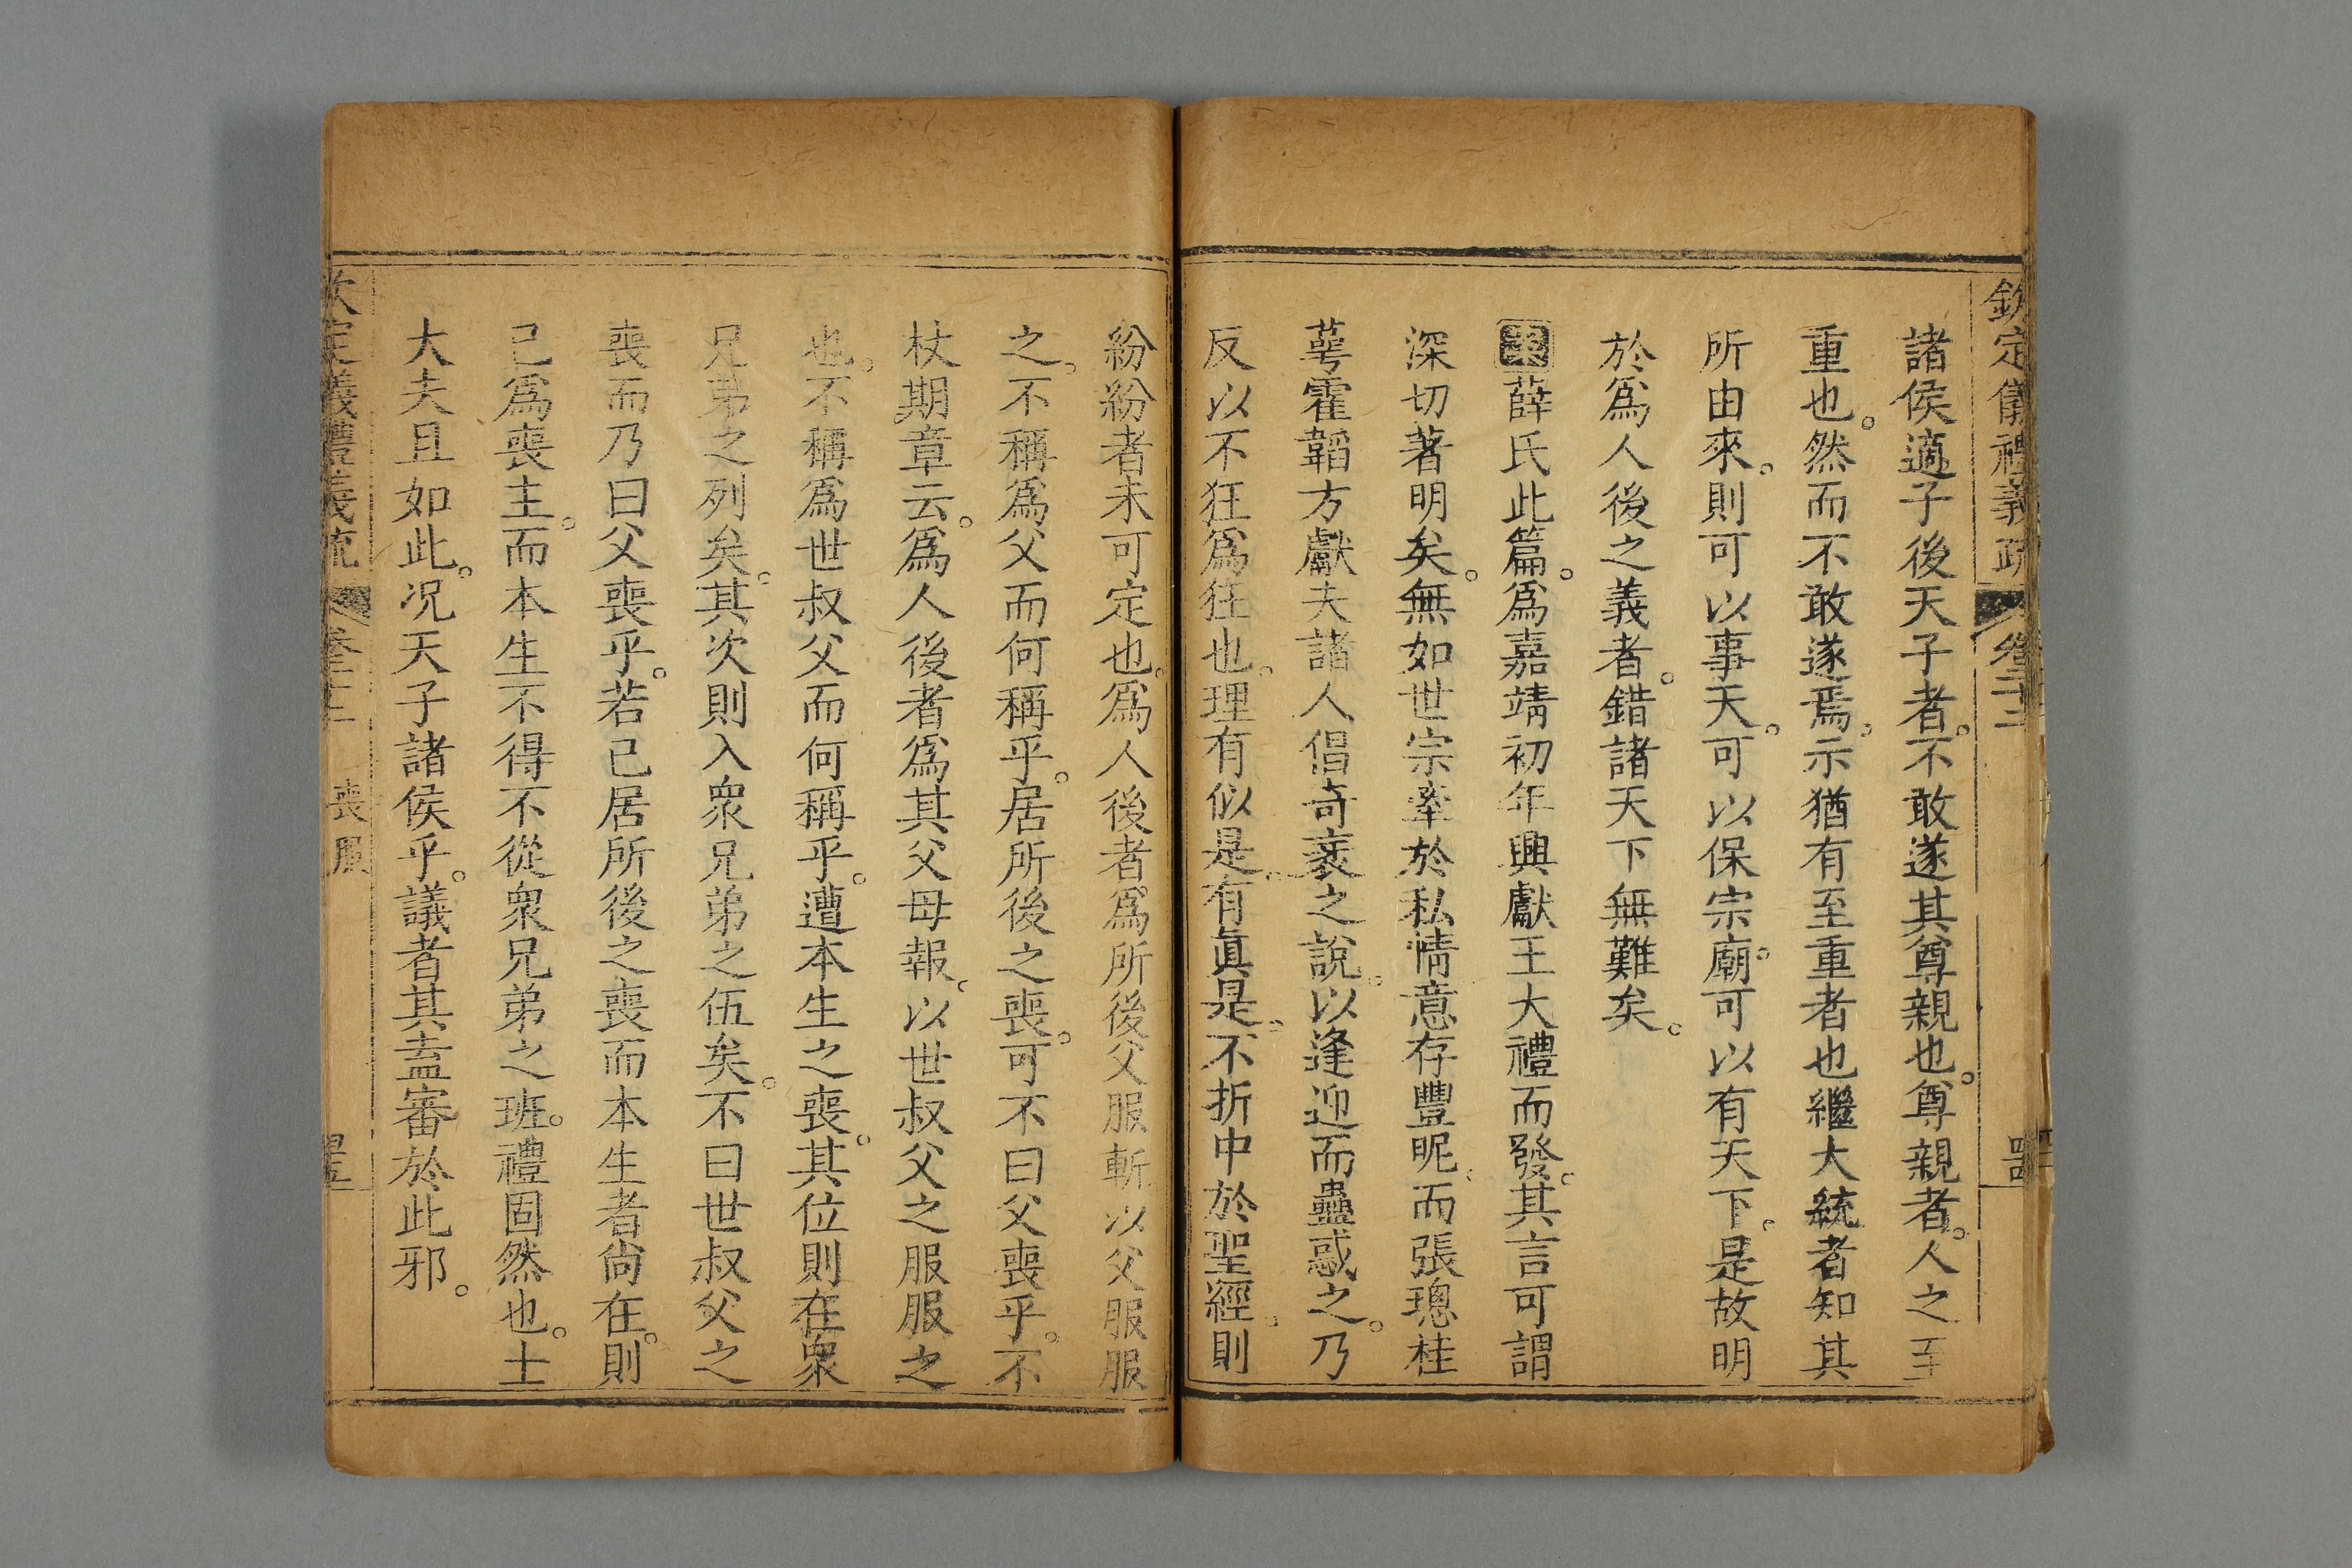 欽定儀禮義疏 卷二十二
諸侯適子後天子者。不敢遂其尊親也。尊親者。人之至
重也。然而不敢遂焉。示猶有至重者也繼大統者知其
所由來。則可以事天。可以保宗廟。可以有天下。是故明
於爲人後之義者。錯諸天下無難矣。
薛氏此篇。爲嘉靖初年興獻王大禮而發。其言可謂
深切著明矣。無如世宗牽於私情意存豐昵。而張璁桂
萼霍韜方獻夫諸人倡奇袤之說。以逢迎而蠱惑之。乃
反以不狂爲狂也。理有似是。有眞是。不折中於聖經。則
紛紛者未可定也。爲人後者爲所後父服斬以父服服
之。不稱爲父而何稱乎。居所後之喪。可不曰父喪乎。不
杖期章云。爲人後者爲其父母報。以世叔父之服服之
也。不稱爲世叔父而何稱乎。遭本生之喪。其位則在衆
兄弟之列矣。其次則入衆兄弟之伍矣。不曰世叔父之
喪而乃曰父喪乎。若已居所後之喪而本生者尙在。則
已爲喪主。而本生不得不從衆兄弟之班。禮固然也。士
大夫且如此。况天子諸侯乎。議者其盍審於此邪。
喪服